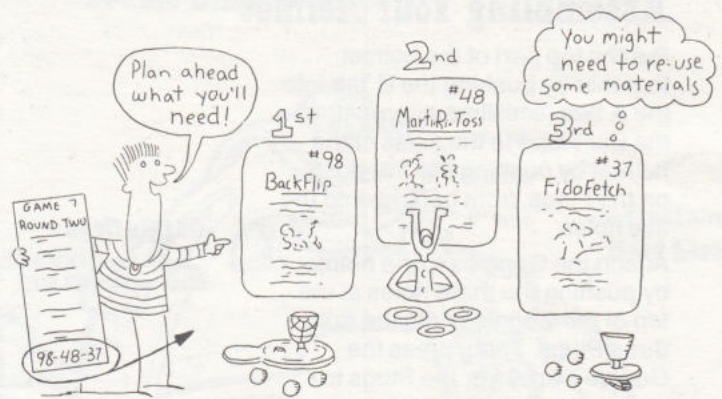 Plan ahead
what you'll
need!
GAME 7
ROUND TWO
98-48-37
1st
#98
BackFlip
2nd
#48
MartiRi.Toss
You might
need to re-use
some materials
3rd
#37
FidoFetch